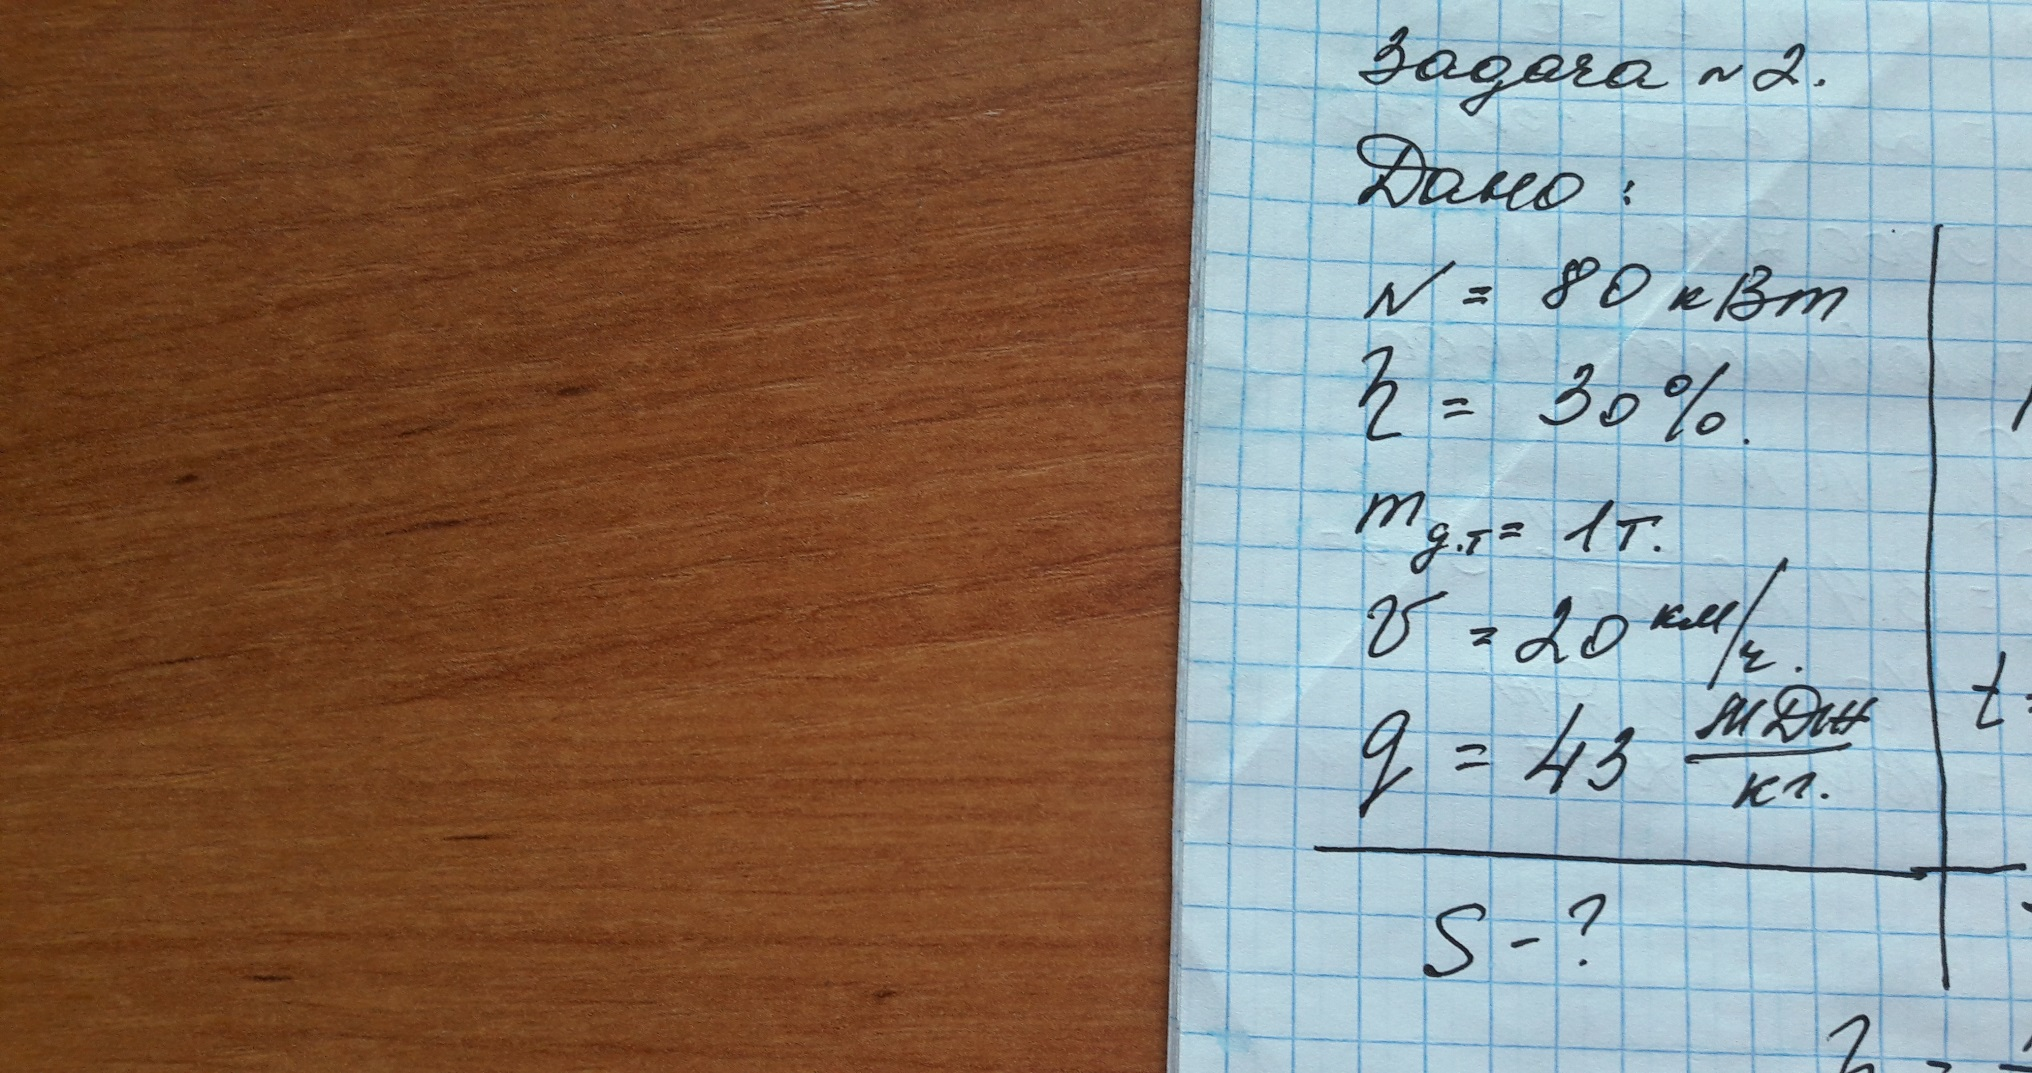 Задача №2.
Дано:
N = 80 кВт
η = 30%.
m д.т = 1т.
υ = 20 км/ч.
t =
q = 43 МДж/кг.
S - ?
η =